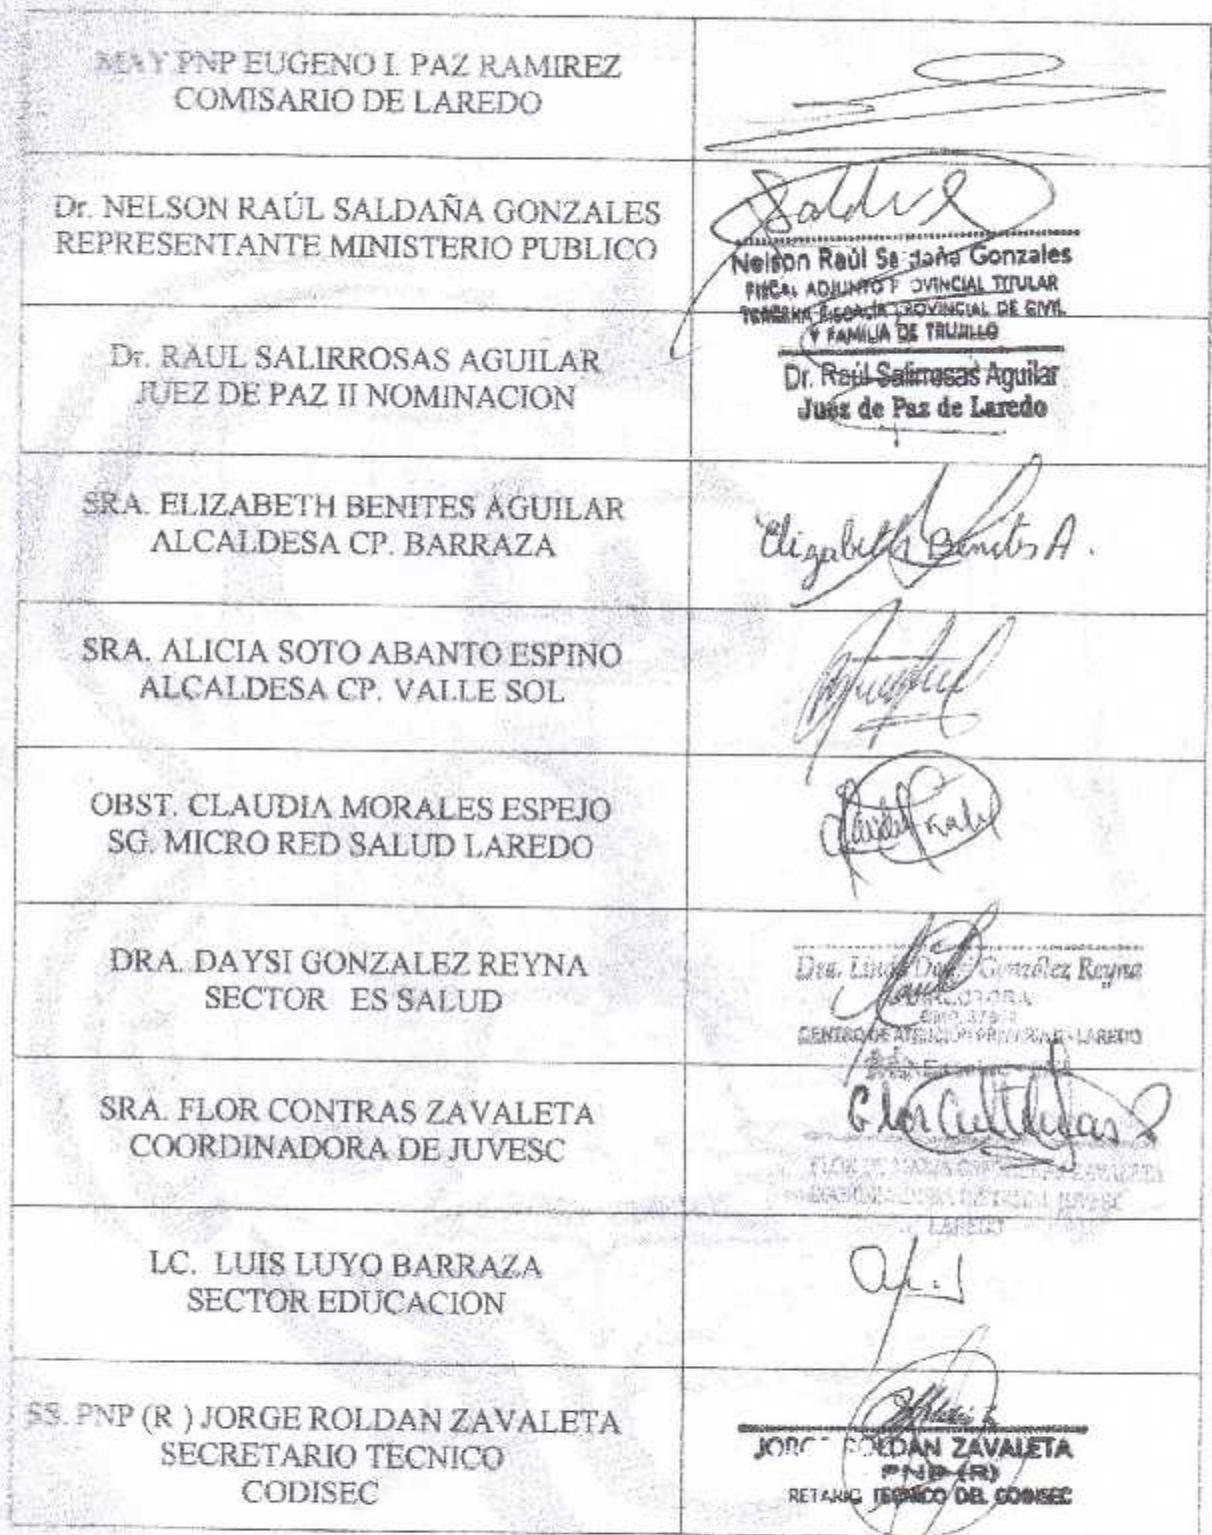 MAY PNP EUGENO I. PAZ RAMIREZ
COMISARIO DE LAREDO
Dr. NELSON RAÚL SALDAÑA GONZALES
REPRESENTANTE MINISTERIO PUBLICO
Nelson Raúl Saldaña Gonzales
FISCAL ADJUNTO PROVINCIAL TITULAR
TERCERA FISCALÍA PROVINCIAL DE CIVIL
Y FAMILIA DE TRUJILLO
Dr. RAUL SALIRROSAS AGUILAR
JUEZ DE PAZ II NOMINACION
Dr. Raúl Salirrosas Aguilar
Juez de Paz de Laredo
SRA. ELIZABETH BENITES AGUILAR
ALCALDESA CP. BARRAZA
Elizabeth Benites A.
SRA. ALICIA SOTO ABANTO ESPINO
ALCALDESA CP. VALLE SOL
OBST. CLAUDIA MORALES ESPEJO
SG. MICRO RED SALUD LAREDO
DRA. DAYSI GONZALEZ REYNA
SECTOR ES SALUD
Dra. González Reyna
CENTRO DE ATENCIÓN LAREDO
SRA. FLOR CONTRAS ZAVALETA
COORDINADORA DE JUVESC
LAREDO
LC. LUIS LUYO BARRAZA
SECTOR EDUCACION
SS. PNP (R ) JORGE ROLDAN ZAVALETA
SECRETARIO TECNICO
CODISEC
JORGE ROLDAN ZAVALETA
PNP (R)
RETARIO TECNICO DEL CODISEC